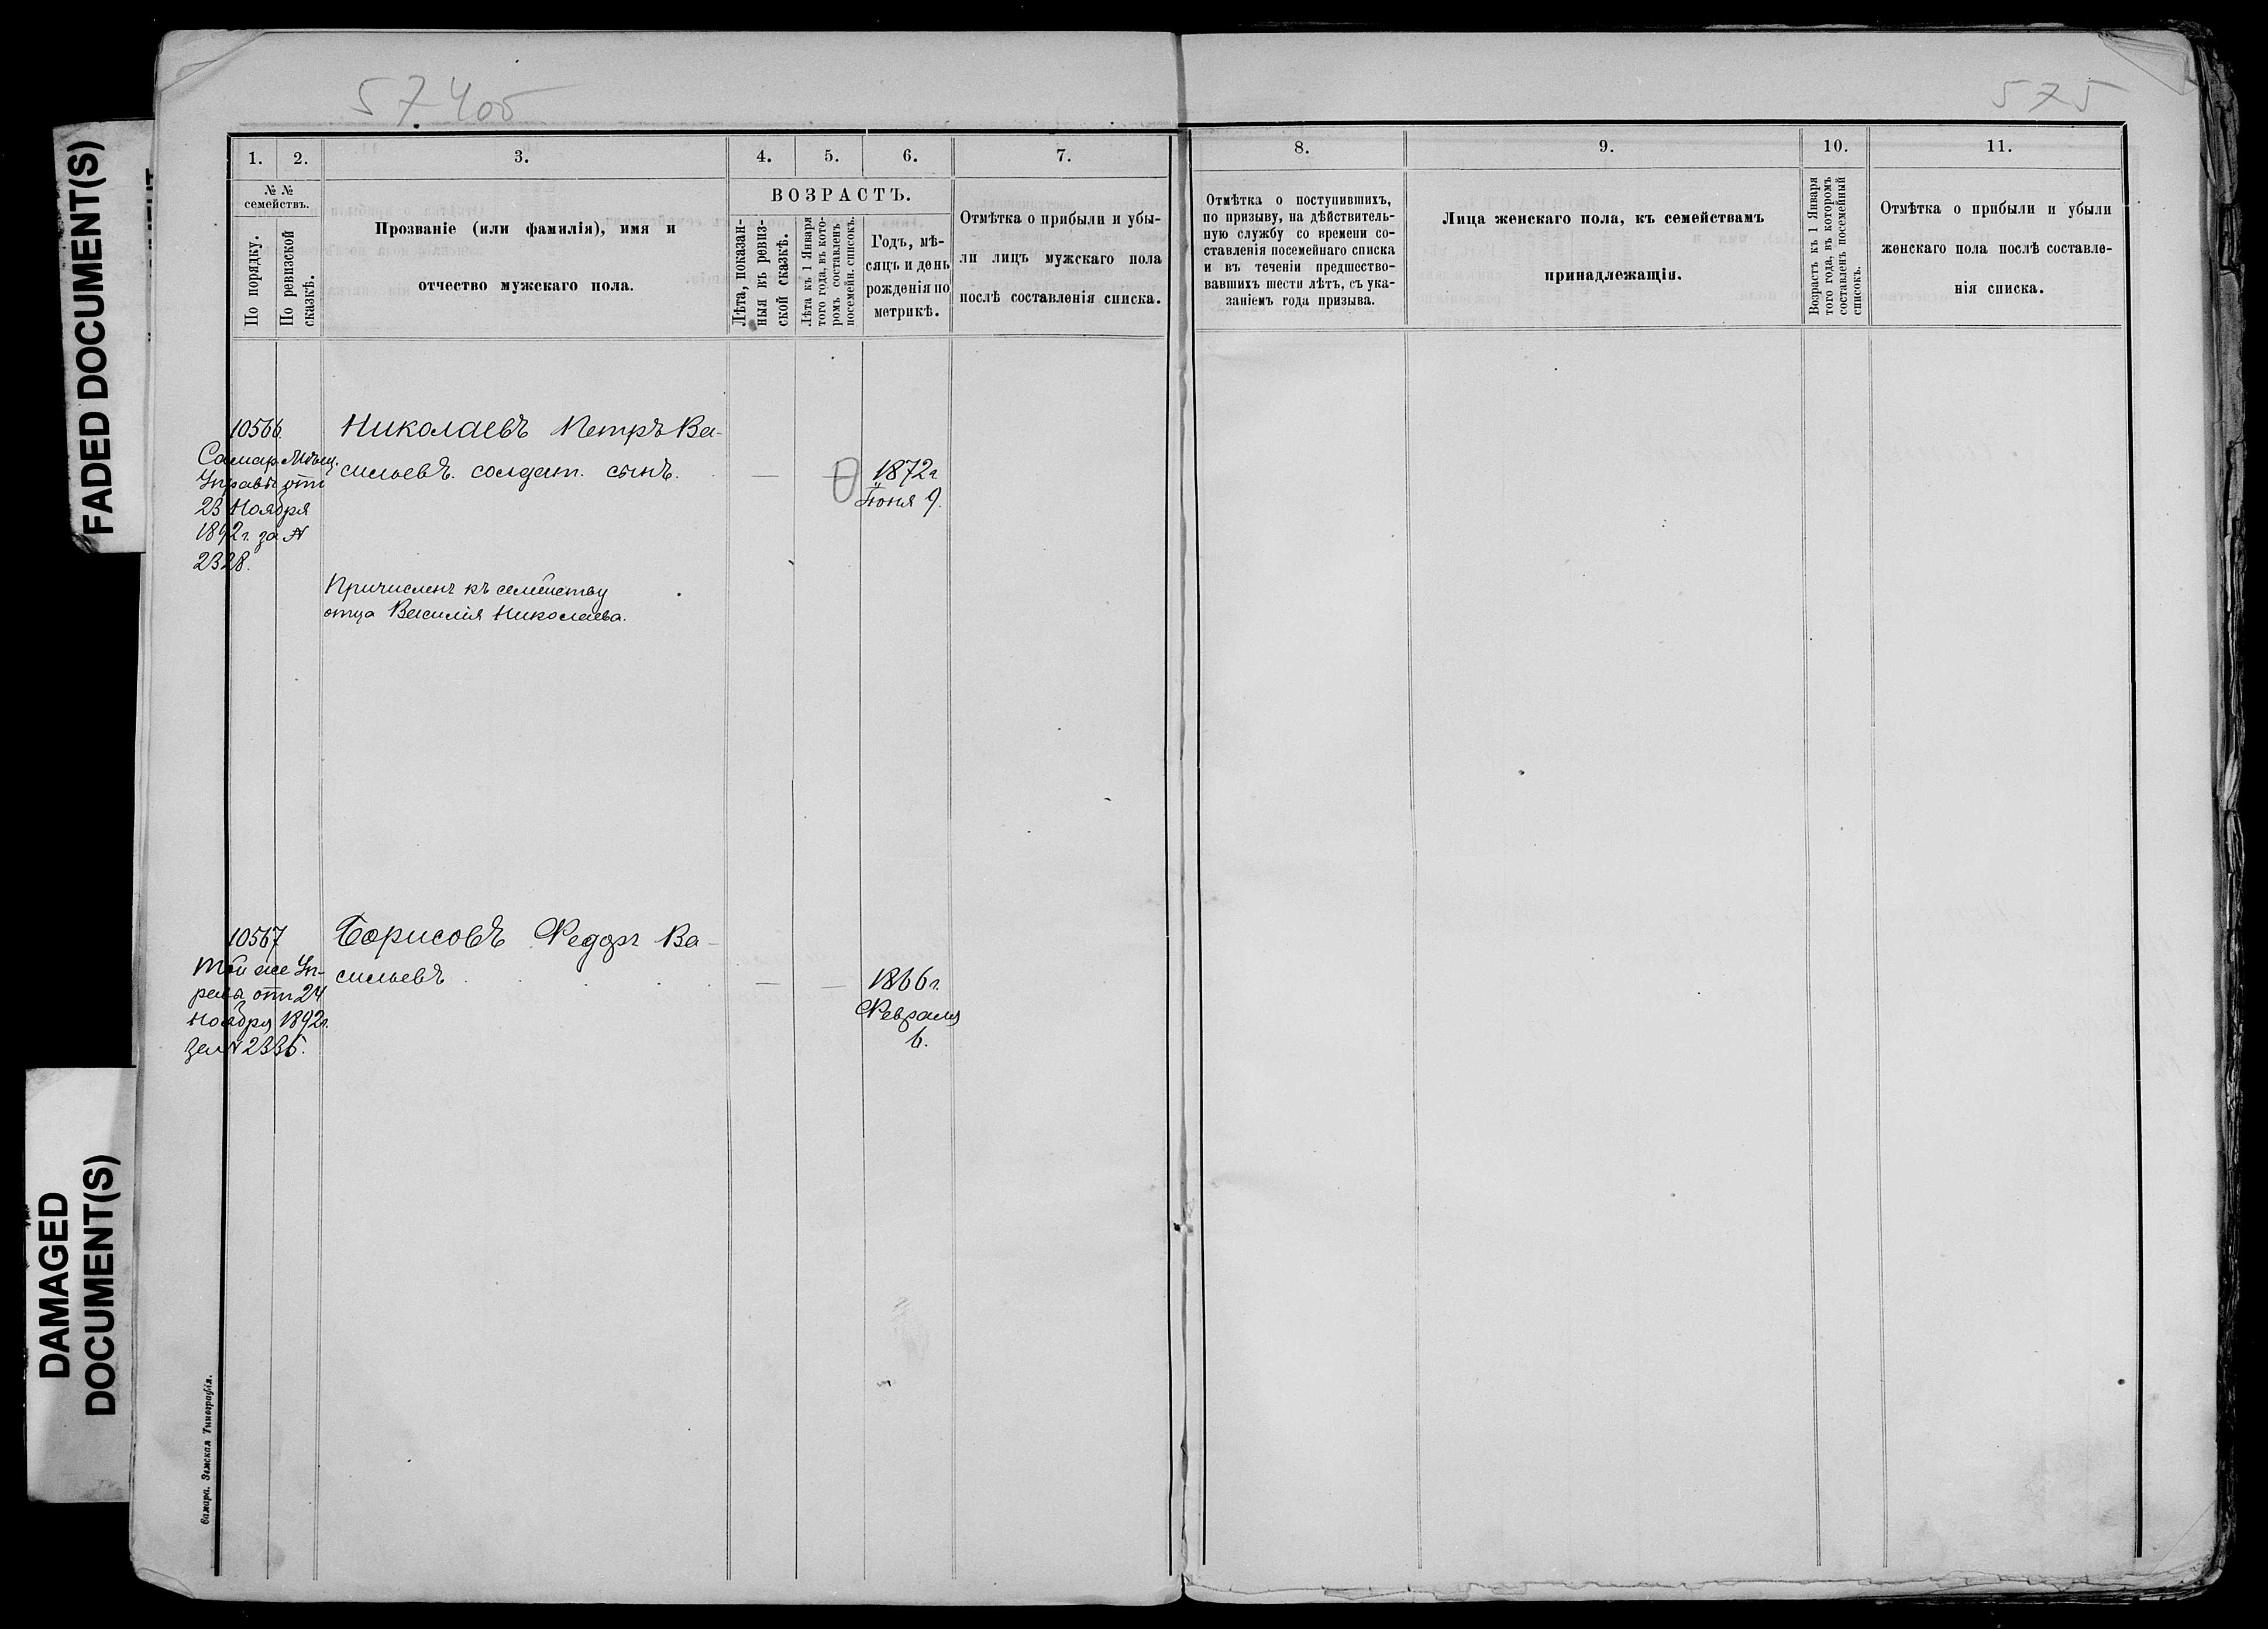 57.400
575
FADED DOCUMENT(S)
DAMAGED
DOCUMENT(S)
1.
2.
3.
4.
5.
6.
7.
8.
9.
10.
11.
№ №
семействъ.
По порядку.
По ревизской
сказкѣ.
Прозваніе (или фамилія), имя и
отчество мужскаго пола.
ВОЗРАСТЪ.
Лѣта, показан-
ныя въ ревиз-
ской сказкѣ.
Лѣта къ 1 Января
того года, въ кото-
ромъ составленъ
посемейн. списокъ.
Годъ, мѣ-
сяцъ и день
рожденія по
метрикѣ.
Отмѣтка о прибыли и убы-
ли лицъ мужскаго пола
послѣ составленія списка.
Отмѣтка о поступившихъ,
по призыву, на дѣйствитель-
ную службу со времени со-
ставленія посемейнаго списка
и въ теченіи предшество-
вавшихъ шести лѣтъ, съ ука-
заніемъ года призыва.
Лица женскаго пола, къ семействамъ
принадлежащія.
Возрастъ къ 1 Января
того года, въ которомъ
составленъ посемейный
списокъ.
Отмѣтка о прибыли и убыли
женскаго пола послѣ составле-
нія списка.
10566.
Самар. Мѣщ.
Управы отъ
23 Ноября
1892 г. за №
2328.
Николаевъ Петръ Ва-
сильевъ. солдат. сынъ.
—
—
1872 г
Іюня 9.
Причисленъ къ семейству
отца Василія Николаева.
10567
Той же Уп-
равы отъ 24
Ноября 1892 г.
за № 2335.
Борисовъ Федоръ Ва-
сильевъ
—
—
1866 г.
Февраля
6.
Самара. Земская Типографія.